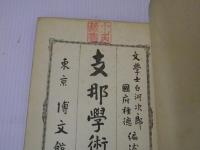 文學士白河次郎
國府種德 編述
支那學術
東京 博文館